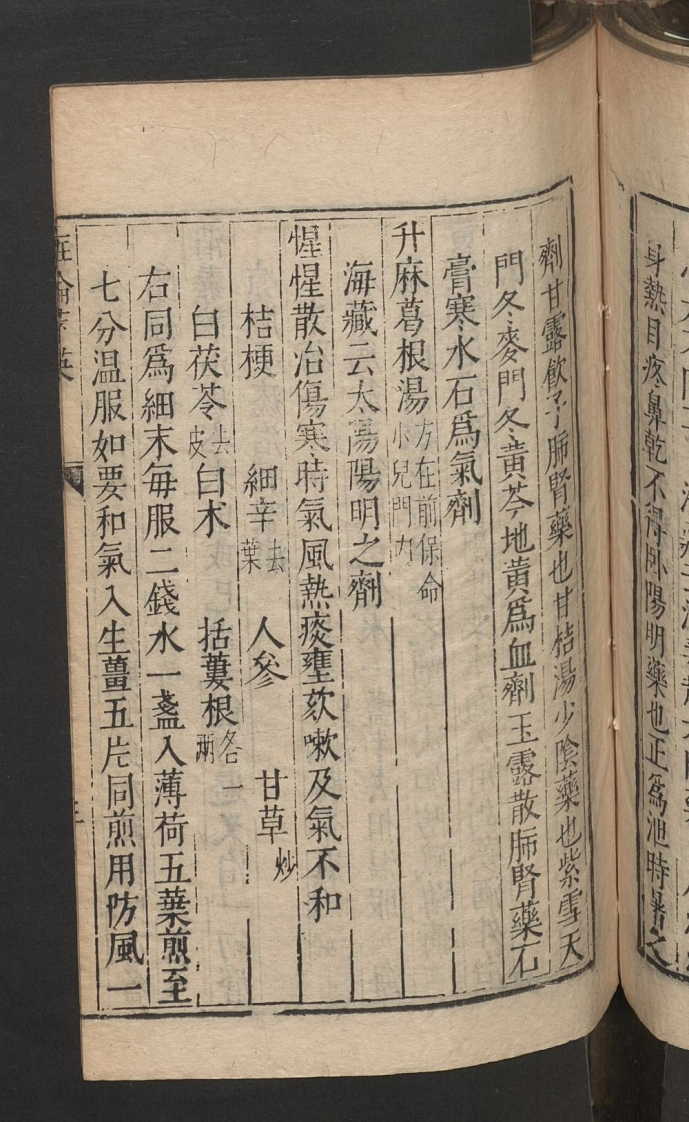 身熱目疼鼻乾不得卧陽明藥也正爲池時暴之
劑甘露飲子肺腎藥也甘桔湯少陰藥也紫雪天
門冬麥門冬黄芩地黄爲血劑玉露散肺腎藥石
膏寒水石爲氣劑
升麻葛根湯方在前保命小兒門内
海藏云太陽陽明之劑
惺惺散治傷寒時氣風熱痰壅欬嗽及氣不和
桔梗 細辛去葉 人參 甘草炒
白茯苓去皮 白朮 括蔞根各一兩
右同爲細末每服二錢水一盞入薄荷五葉煎至
七分温服如要和氣入生薑五片同煎用防風一